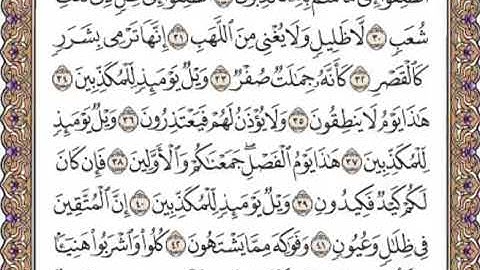 شُعَبٍ ٣٠ لَّا ظَلِيلٍ وَلَا يُغْنِي مِنَ ٱللَّهَبِ ٣١ إِنَّهَا تَرْمِي بِشَرَرٍ
كَٱلْقَصْرِ ٣٢ كَأَنَّهُۥ جِمَٰلَتٌ صُفْرٌ ٣٣ وَيْلٌ يَوْمَئِذٍ لِّلْمُكَذِّبِينَ ٣٤
هَٰذَا يَوْمُ لَا يَنطِقُونَ ٣٥ وَلَا يُؤْذَنُ لَهُمْ فَيَعْتَذِرُونَ ٣٦ وَيْلٌ يَوْمَئِذٍ
لِّلْمُكَذِّبِينَ ٣٧ هَٰذَا يَوْمُ ٱلْفَصْلِۖ جَمَعْنَٰكُمْ وَٱلْأَوَّلِينَ ٣٨ فَإِن كَانَ
لَكُمْ كَيْدٌ فَكِيدُونِ ٣٩ وَيْلٌ يَوْمَئِذٍ لِّلْمُكَذِّبِينَ ٤٠ إِنَّ ٱلْمُتَّقِينَ
فِي ظِلَٰلٍ وَعُيُونٍ ٤١ وَفَوَٰكِهَ مِمَّا يَشْتَهُونَ ٤٢ كُلُوا۟ وَٱشْرَبُوا۟ هَنِيٓـًٔۢا